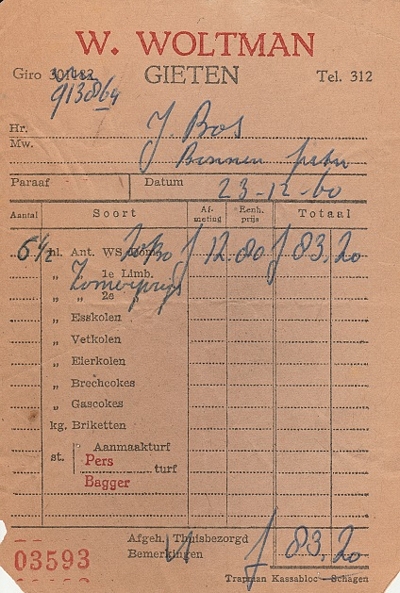 W. WOLTMAN
Giro 301182 GIETEN Tel. 312
913864
Hr. J. Bos
Mw. Bonnen
Paraaf Datum 23-12-60
Aantal Soort Af-meting Eenh. prijs Totaal
6½ hl. Ant. WS f 12.80 f 83,20
„ „ 1e Limb.
Zomerprijs
„ „ 2e „
„ Esskolen
„ Vetkolen
„ Eierkolen
„ Brechcokes
„ Gascokes
kg. Briketten
Aanmaakturf
st. Pers turf
Bagger
Afgeh. Thuisbezorgd f 83,20
Bemerkingen
03593
Trapman Kassabloc - Schagen